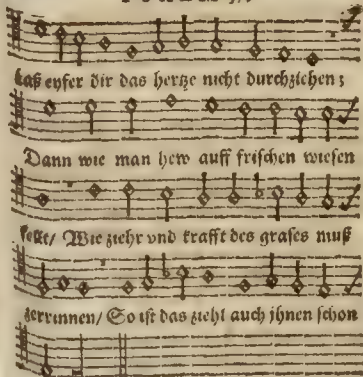 laß eyfer dir das hertze nicht durchziehen;
Dann wie man hew auff frischen wiesen
Wie ziehr vnd krafft des grases muß
zerrinnen/ So ist das ziehl auch jhnen schon